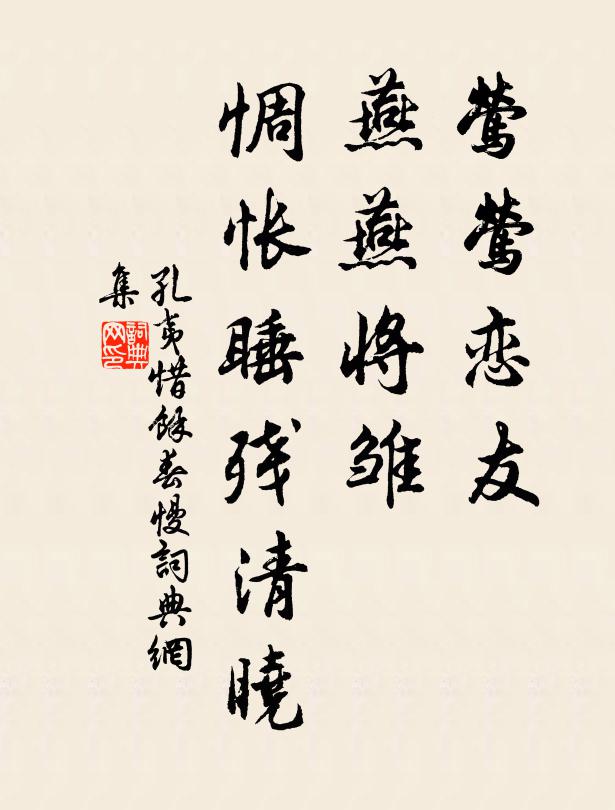 莺莺恋友
燕燕将雏
惆怅睡残清晓
孔夷惜馀春慢詞典網
集
詞典
网印